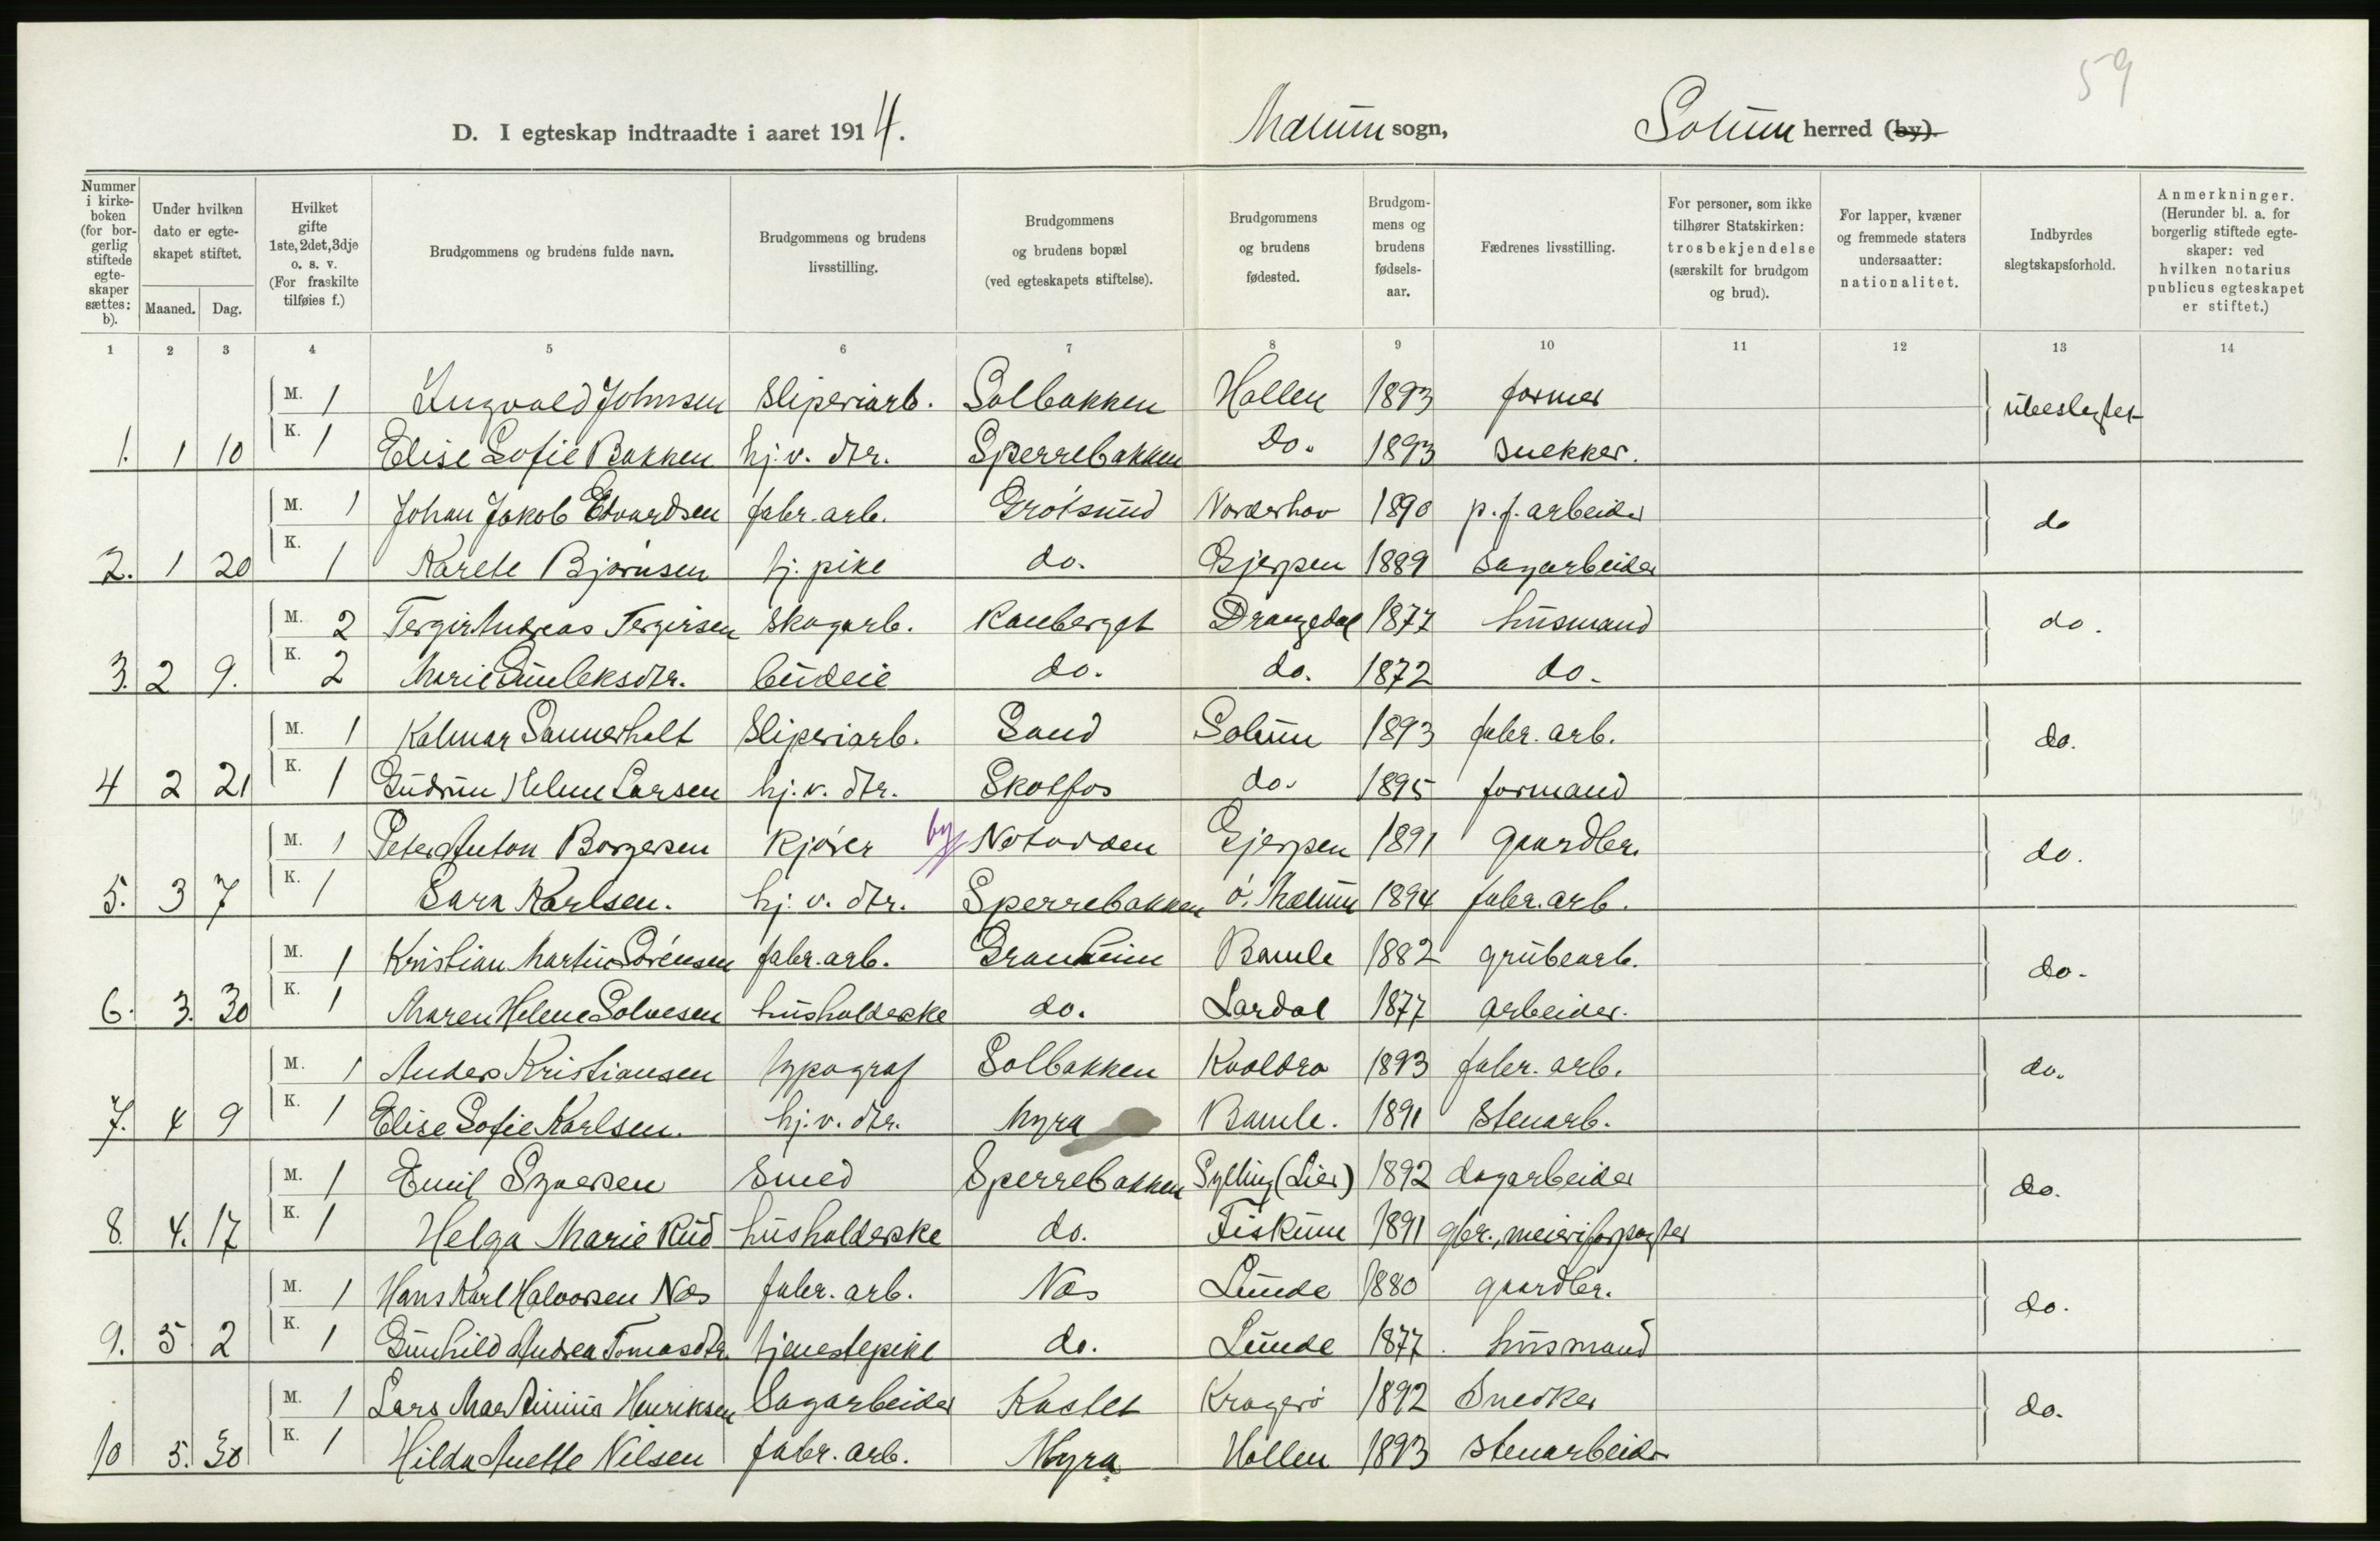 59
D. I egteskap indtraadte i aaret 1914. Mælum sogn, Solum herred (by).
Nummer i kirkeboken (for borgerlig stiftede egteskaper sættes: b). Under hvilken dato er egteskapet stiftet. Maaned. Dag. Hvilket gifte 1ste, 2det, 3dje o. s. v. (For fraskilte tilføies f.) Brudgommens og brudens fulde navn. Brudgommens og brudens livsstilling. Brudgommens og brudens bopæl (ved egteskapets stiftelse). Brudgommens og brudens fødested. Brudgommens og brudens fødselsaar. Fædrenes livsstilling. For personer, som ikke tilhører Statskirken: trosbekjendelse (særskilt for brudgom og brud). For lapper, kvæner og fremmede staters undersaatter: nationalitet. Indbyrdes slegtskapsforhold. Anmerkninger. (Herunder bl. a. for borgerlig stiftede egteskaper: ved hvilken notarius publicus egteskapet er stiftet.)
1 2 3 4 5 6 7 8 9 10 11 12 13 14
M. 1 Ingvald Johnsen Sliperiarb. Solbakken Hollen 1893 former ubeslegtet
1. 1 10 K. 1 Elise Sofie Bakken hj.v. dtr. Sperrebakken do. 1893 snekker.
M. 1 Johan Jakob Edvardsen fabr. arb. Grótsund Norderhov 1890 p. f. arbeider do
2. 1 20 K. 1 Karete Bjørnsen tj. pike do. Gjerpen 1889 sagarbeider
M. 2 Tergir Andreas Tergirsen Skogarb. Kauberget Drangedal 1877 husmand do.
3. 2 9. K. 2 Marie Gunleksdtr. budeie do. do. 1872 do.
M. 1 Kalmar Sannerholt Sliperiarb. Sand Solum 1893 fabr. arb. do.
4 2 21 K. 1 Gudrun Helene Larsen hj.v. dtr. Skotfos do. 1895 formand
M. 1 Peter Anton Borgersen Kjører by Notodden Gjerpen 1891 gaardbr. do.
5. 3 7 K. 1 Sara Karlsen. hj. v. dtr. Sperrebakken ó. Mælum 1894 fabr. arb.
M. 1 Kristian Martin Sørensen fabr. arb. Granheim Bamle 1882 grubearb. do.
6. 3. 30 K. 1 Maren Helene Solvesen husholderske do. Lardal 1877 arbeider.
M. 1 Anders Kristiansen typograf Solbakken Kvoldra 1893 fabr. arb. do.
7. 4 9 K. 1 Elise Sofie Karlsen. hj. v. dtr. Myra Bamle. 1891 stenarb.
M. 1 Emil Syversen Smed Sperrebakken Sylling (Lier) 1892 dagarbeider do.
8. 4. 17 K. 1 Helga Marie Rud husholderske do. Fiskum 1891 gbr., meieriforpagter
M. 1 Hans Karl Halvorsen Næs fabr. arb. Næs Lunde 1880 gaardbr. do.
9. 5 2 K. 1 Gunhild Andrea Tomasdtr. tjenestepike do. Lunde 1877. husmand
M. 1 Lars Martinius Henriksen Sagarbeider Kastet Kragerø 1892 Snedker do.
10 5. 30 K. 1 Hilda Anette Nilsen fabr. arb. Myra Hollen 1893 stenarbeider